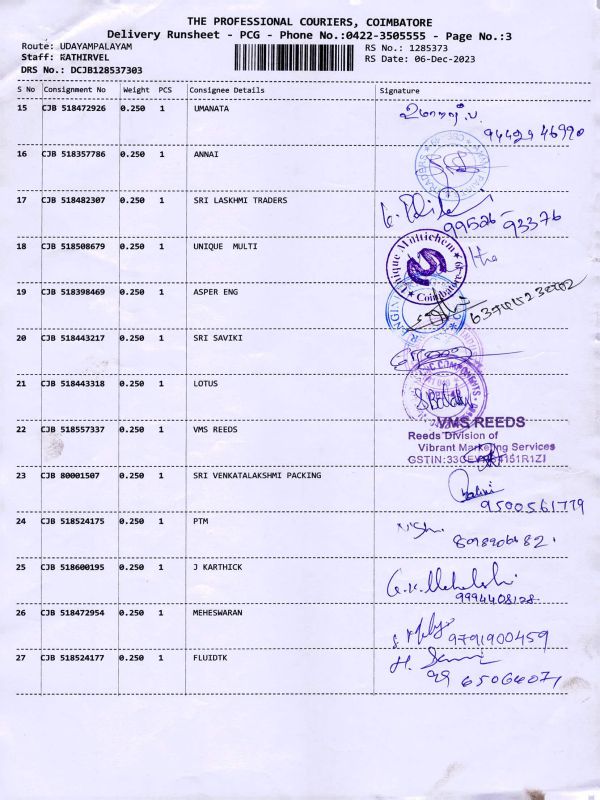 THE PROFESSIONAL COURIERS, COIMBATORE
Delivery Runsheet - PCG - Phone No.:0422-3505555 - Page No.:3
Route: UDAYAMPALAYAM
RS No.: 1285373
Staff: KATHIRVEL
RS Date: 06-Dec-2023
DRS No.: DCJB128537303
S No Consignment No Weight PCS Consignee Details Signature
15 CJB 518472926 0.250 1 UMANATA
16 CJB 518357786 0.250 1 ANNAI
17 CJB 518482307 0.250 1 SRI LASKHMI TRADERS
99526-93376
18 CJB 518508679 0.250 1 UNIQUE MULTI
Unique Multichem
Coimbatore
19 CJB 518398469 0.250 1 ASPER ENG
20 CJB 518443217 0.250 1 SRI SAVIKI
21 CJB 518443318 0.250 1 LOTUS
COMPONENTS
22 CJB 518557337 0.250 1 VMS REEDS
VMS REEDS
Reeds Division of
Vibrant Marketing Services
23 CJB 80001507 0.250 1 SRI VENKATALAKSHMI PACKING
9500561779
24 CJB 518524175 0.250 1 PTM
25 CJB 518600195 0.250 1 J KARTHICK
9994408128
26 CJB 518472954 0.250 1 MEHESWARAN
9791900459
27 CJB 518524177 0.250 1 FLUIDTK